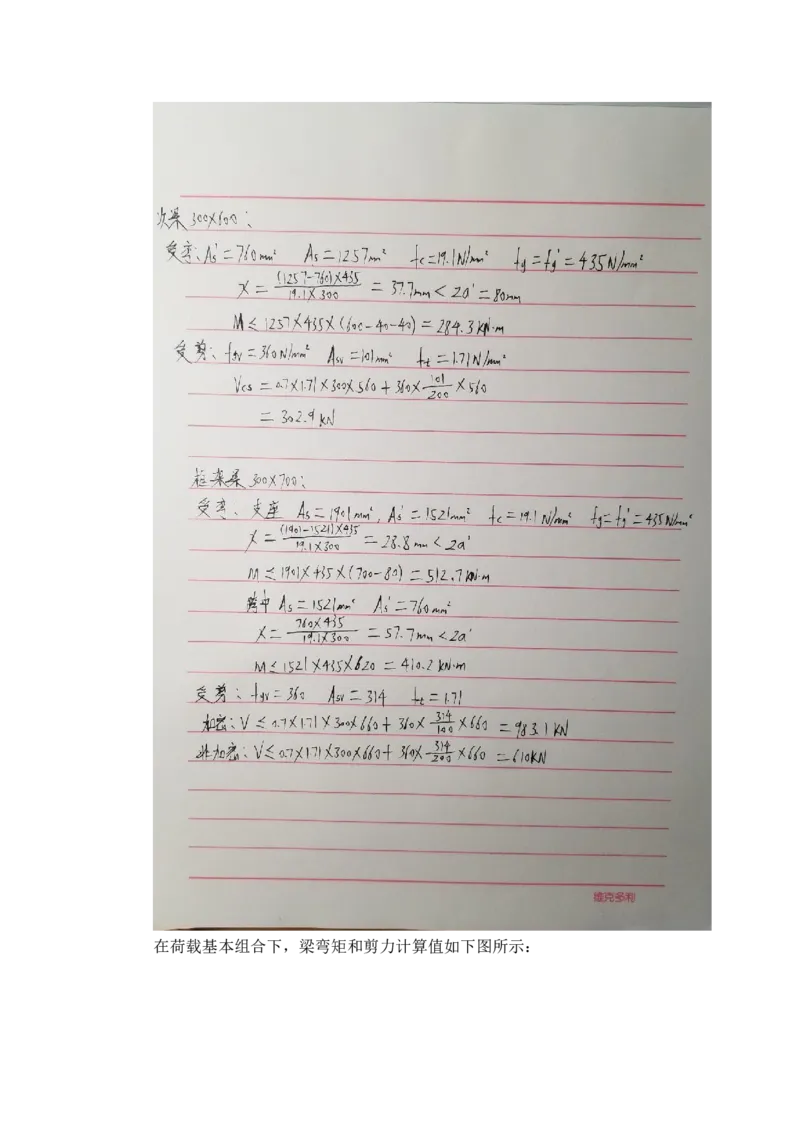 次梁 300×600：
受弯：As'=760mm² As=1257mm² fc=19.1N/mm² fy=fy'=435N/mm²
x=(1257-760)×435/19.1×300=37.7mm<2a'=80mm
M≤1257×435×(600-40-40)=284.3kN·m
受剪：fyv=360N/mm² Asv=101mm² ft=1.71N/mm²
Vcs=0.7×1.71×300×560+360×101/200×560
=302.9kN
框架梁 300×700：
受弯、支座 As=1901mm², As'=1521mm² fc=19.1N/mm² fy=fy'=435N/mm²
x=(1901-1521)×435/19.1×300=28.8mm<2a'
M≤1901×435×(700-80)=512.7kN·m
跨中 As=1521mm² As'=760mm²
x=760×435/19.1×300=57.7mm<2a'
M≤1521×435×620=410.2kN·m
受剪：fyv=360 Asv=314 ft=1.71
加密：V≤0.7×1.71×300×660+360×314/100×660=983.1kN
非加密：V≤0.7×1.71×300×660+360×314/200×660=610kN
维克多利
在荷载基本组合下，梁弯矩和剪力计算值如下图所示：